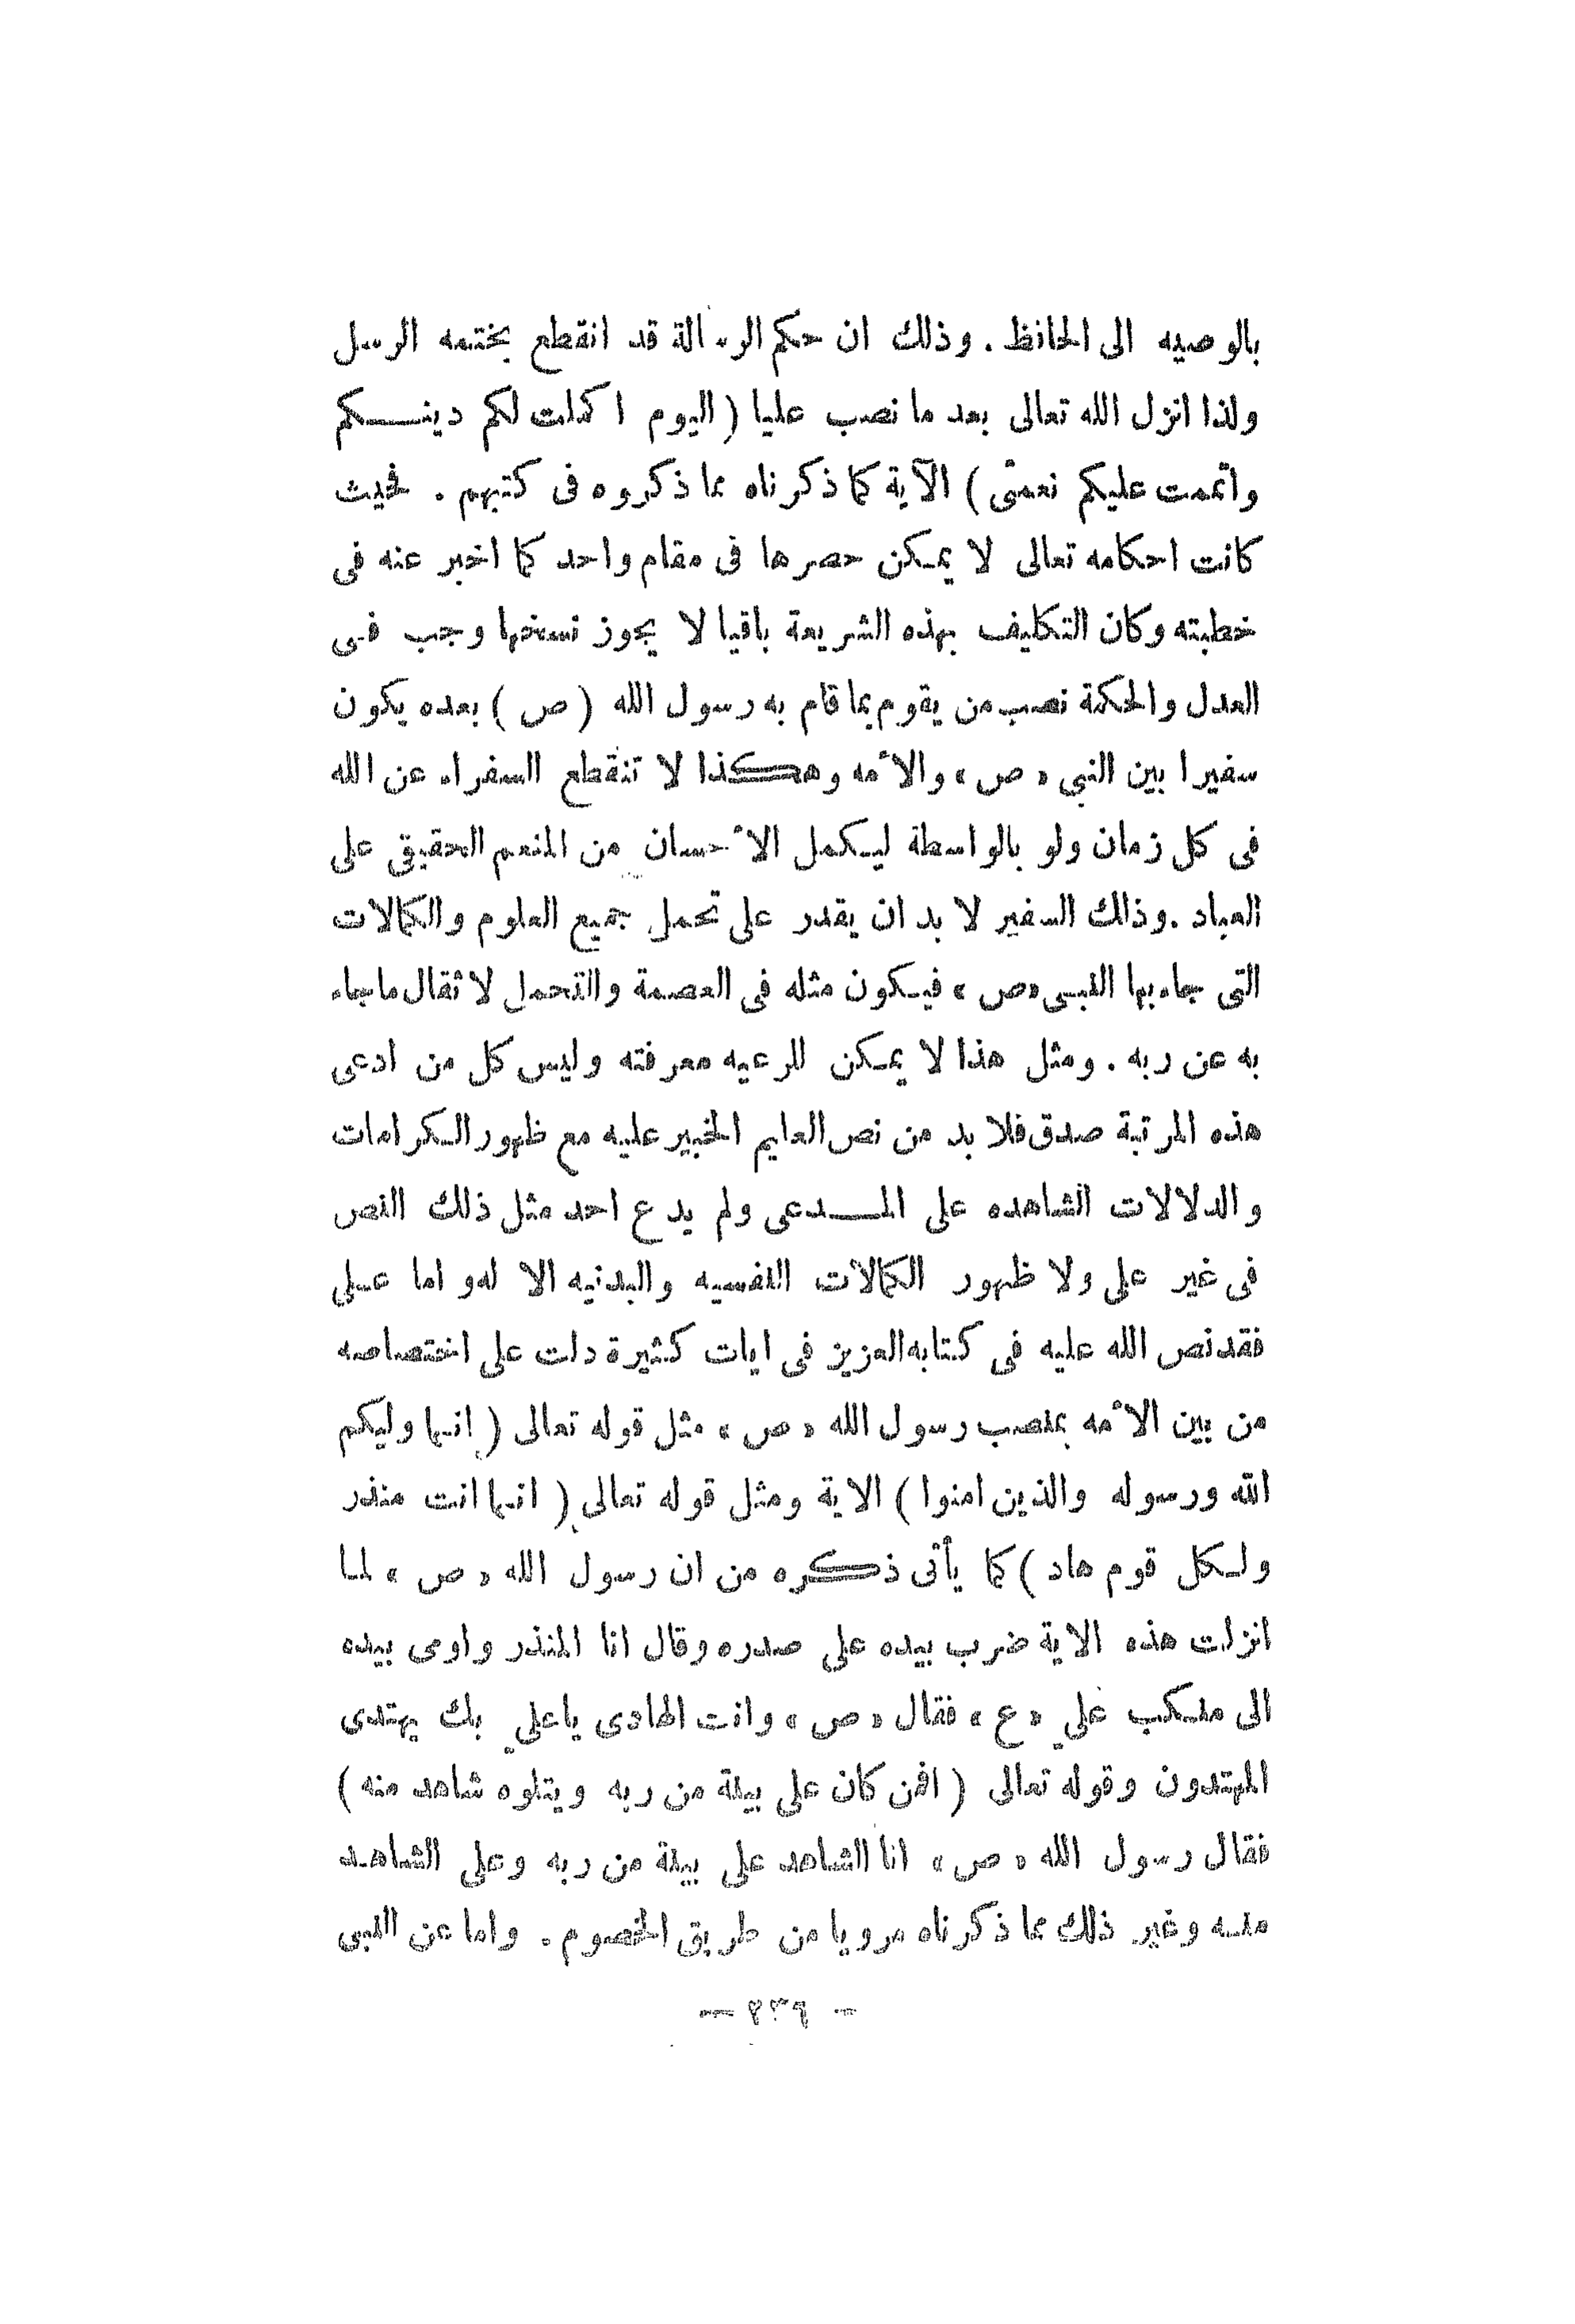 بالوصيه الى الحافظ . وذلك ان حكم الرسالة قد انقطع بختمه الرسل
ولذا انزل الله تعالى بعد ما نصب عليا ( اليوم اكملت لكم دينكم
واتممت عليكم نعمتى ) الآية كما ذكرناه مما ذكروه فى كتبهم . فحيث
كانت احكامه تعالى لا يمكن حصرها فى مقام واحد كما اخبر عنه فى
خطبته وكان التكليف بهذه الشريعة باقيا لا يجوز نسخها وجب فى
العدل والحكمة نصب من يقوم بما قام به رسول الله ( ص ) بعده يكون
سفيرا بين النبي « ص » والأمه وهكذا لا تنقطع السفراء عن الله
فى كل زمان ولو بالواسطة ليكمل الأحسان من المنعم الحقيقي على
العباد . وذلك السفير لا بد ان يقدر على تحمل جميع العلوم والكمالات
التى جاء بها النبى «ص » فيكون مثله فى العصمة والتحمل لاثقال ما جاء
به عن ربه . ومثل هذا لا يمكن للرعيه معرفته وليس كل من ادعى
هذه المرتبة صدق فلا بد من نص العليم الخبير عليه مع ظهور الكرامات
والدلالات الشاهده على المدعى ولم يدع احد مثل ذلك النص
فى غير علي ولا ظهور الكمالات النفسيه والبدنيه الا له و اما على
فقد نص الله عليه فى كتابه العزيز فى ايات كثيرة دلت على اختصاصه
من بين الأمه بمنصب رسول الله « ص » مثل قوله تعالى ( انما وليكم
الله ورسوله والذين امنوا ) الاية ومثل قوله تعالى ( انما انت منذر
ولكل قوم هاد ) كما يأتى ذكره من ان رسول الله « ص » لما
انزلت هذه الاية ضرب بيده على صدره وقال انا المنذر واومى بيده
الى منكب علي « ع » فقال « ص » وانت الهادى يا علي بك يهتدى
المهتدون وقوله تعالى ( افمن كان على بينة من ربه ويتلوه شاهد منه )
فقال رسول الله « ص » انا الشاهد على بينة من ربه وعلى الشاهد
منه وغير ذلك مما ذكرناه مرويا من طريق الخصوم . واما عن النبى